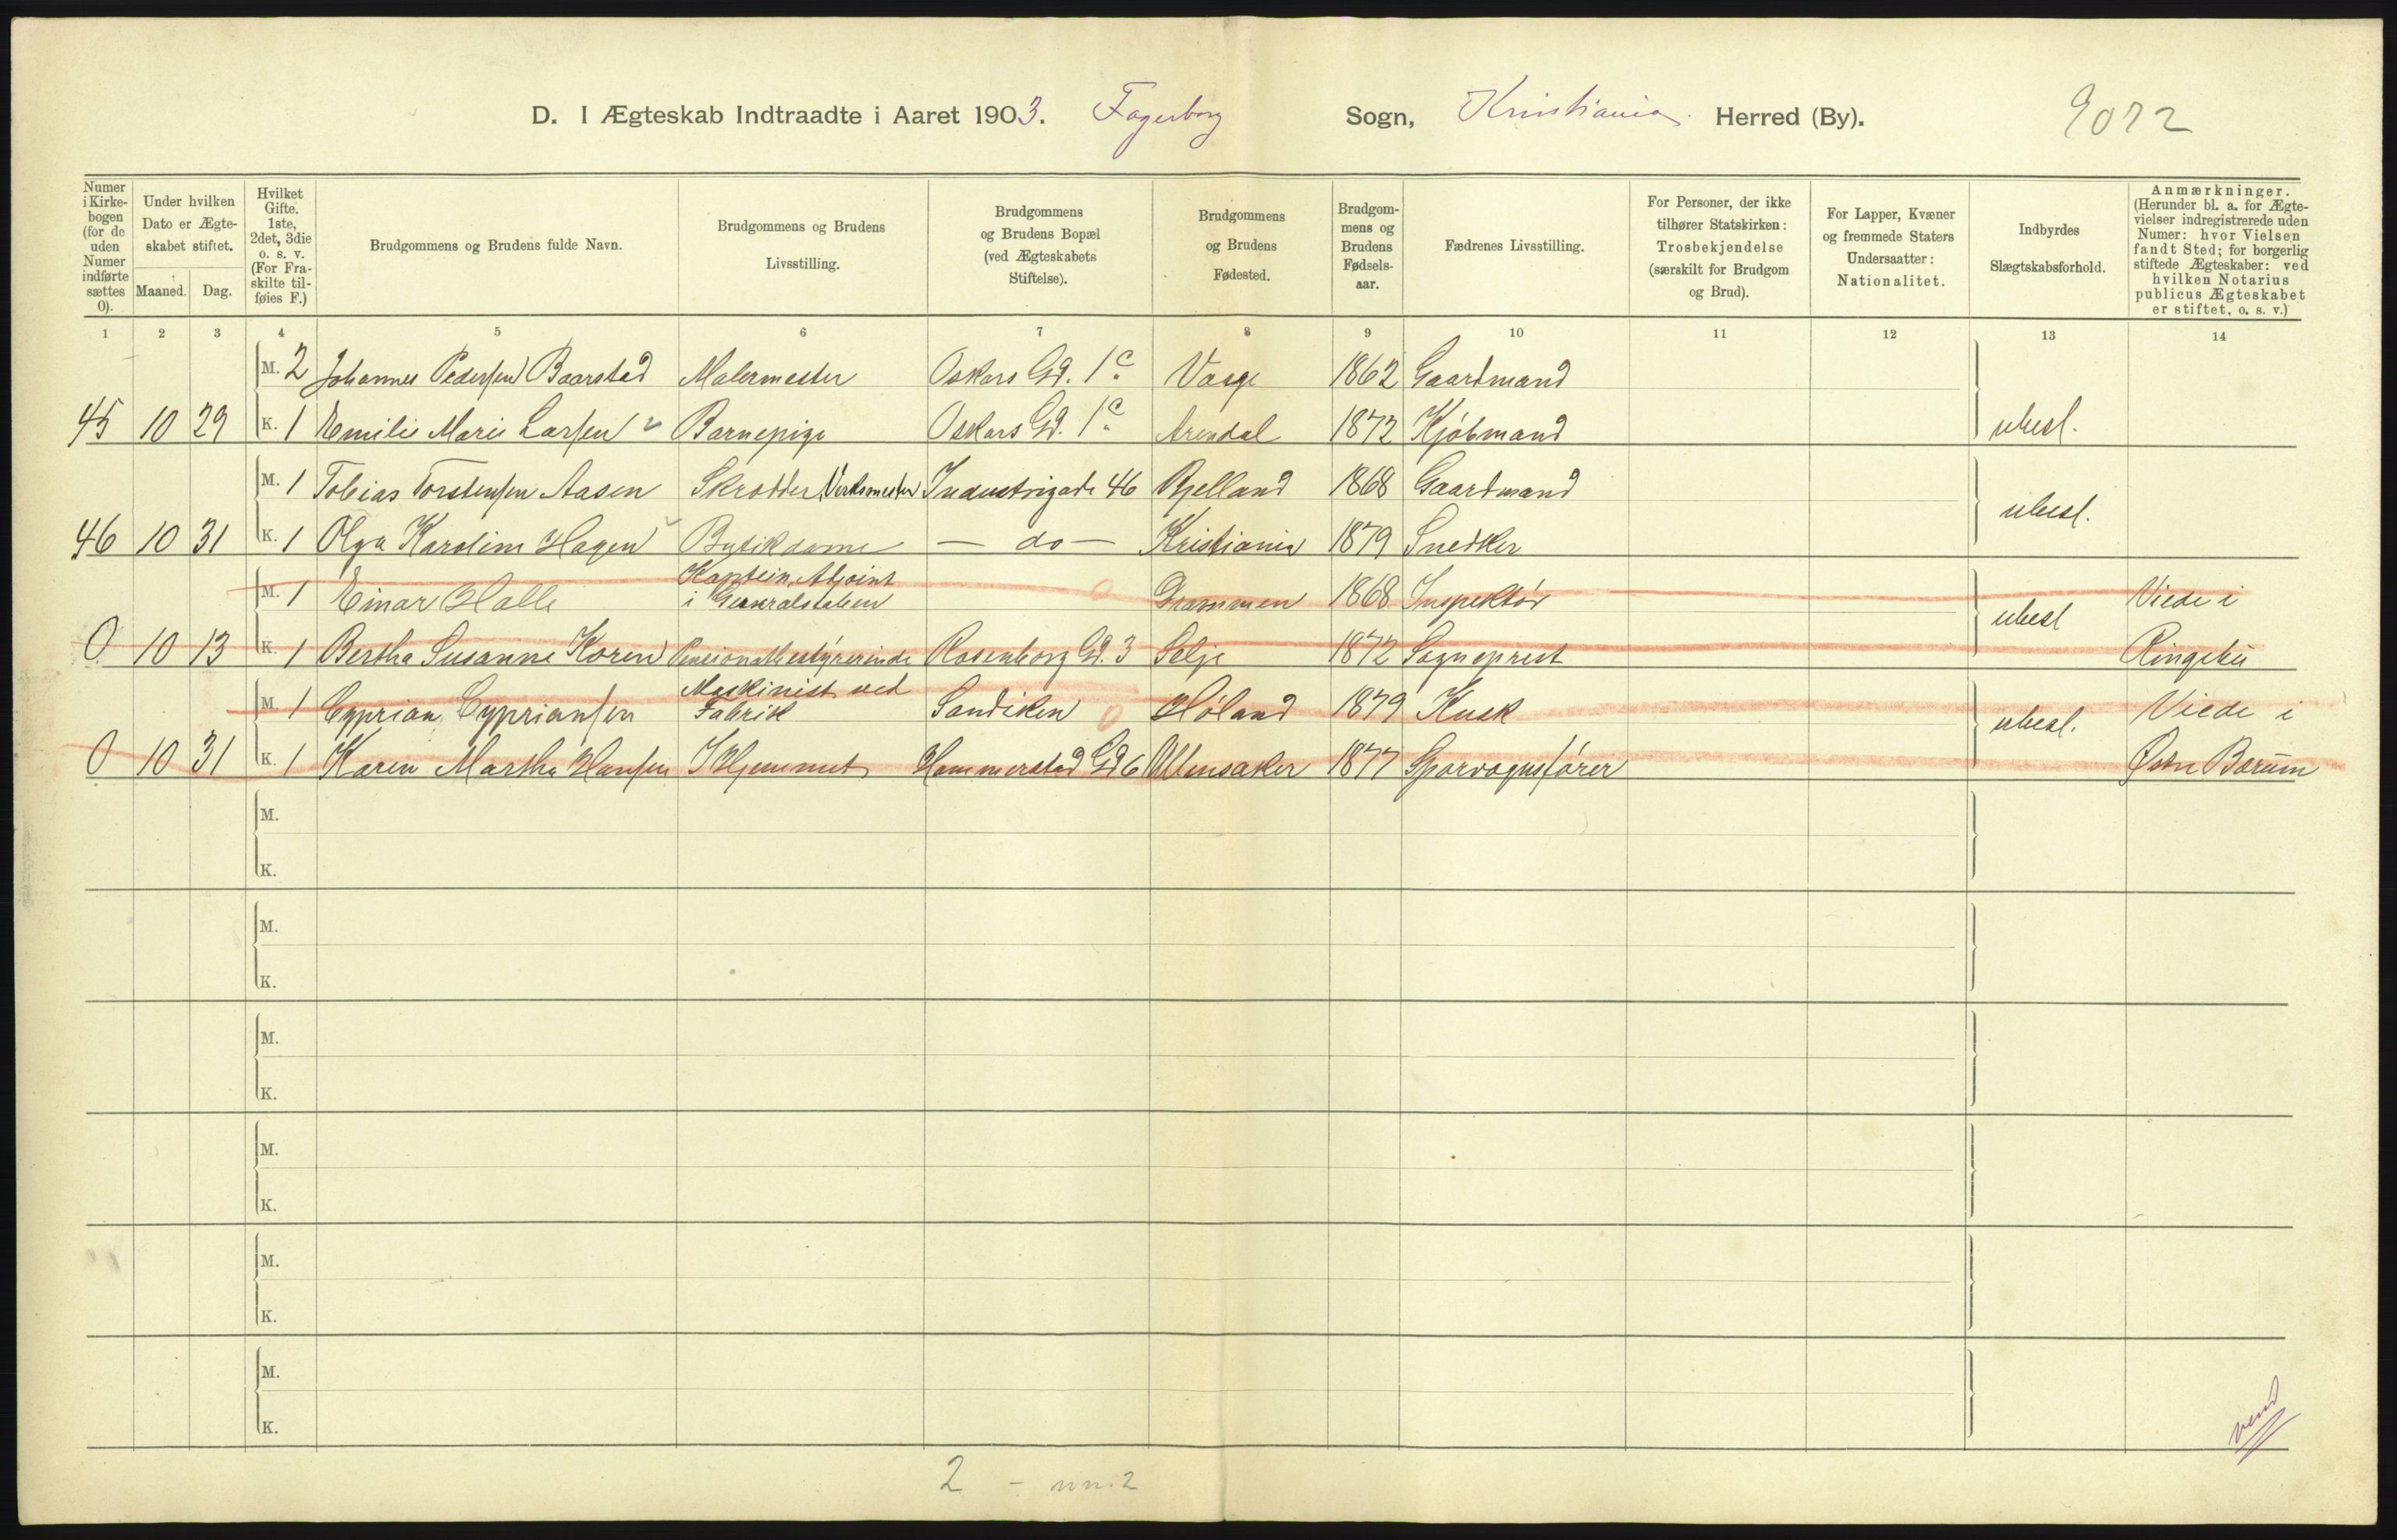 D. I Ægteskab Indtraadte i Aaret 1903. Fagerborg Sogn, Kristiania Herred (By). 9072
Numer i Kirkebogen (for de uden Numer indførte sættes 0).
Under hvilken Dato er Ægteskabet stiftet.
Maaned. Dag.
Hvilket Gifte. 1ste, 2det, 3die o. s. v. (For Fraskilte tilføies F.)
Brudgommens og Brudens fulde Navn.
Brudgommens og Brudens Livsstilling.
Brudgommens og Brudens Bopæl (ved Ægteskabets Stiftelse).
Brudgommens og Brudens Fødested.
Brudgommens og Brudens Fødselsaar.
Fædrenes Livsstilling.
For Personer, der ikke tilhører Statskirken: Trosbekjendelse (særskilt for Brudgom og Brud).
For Lapper, Kvæner og fremmede Staters Undersaatter: Nationalitet.
Indbyrdes Slægtskabsforhold.
Anmærkninger. (Herunder bl. a. for Ægtevielser indregistrerede uden Numer: hvor Vielsen fandt Sted; for borgerlig stiftede Ægteskaber: ved hvilken Notarius publicus Ægteskabet er stiftet, o. s. v.)
1 2 3 4 5 6 7 8 9 10 11 12 13 14
M. 2 Johannes Pedersen Baarstad Malermester Oskars Gd. 1c Vaage 1862 Gaardmand
45 10 29 K. 1 Emilie Marie Larsen Barnepige Oskars Gd. 1c Arendal 1872 Kjøbmand ubesl.
M. 1 Tobias Torstensen Aasen Skrædder Verksmester Industrigade 46 Bjelland 1868 Gaardmand
46 10 31 K. 1 Olga Karoline Hagen Butikdame — do — Kristiania 1879 Snedker ubesl.
M. 1 Einar Halle Kaptein, Adjoint i Generalstaben Drammen 1868 Inspektør Viede i
0 10 13 K. 1 Bertha Susanne Koren Pensionatbestyrerinde Rosenborg Gd. 3 Selje 1872 Sogneprest ubesl Ringebu
M. 1 Cyprian Cypriansen Maskinist ved Fabrik Sandviken Høland 1879 Kusk Viede i
0 10 31 K. 1 Karen Martha Hansen I Hjemmet Hammerstad Gd 6 Ullensaker 1877 Sporvognsfører ubesl. Østre Bærum
M.
K.
M.
K.
M.
K.
M.
K.
M.
K.
M.
K.
vend
2 —